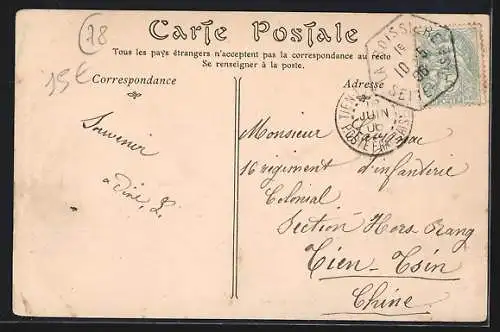 78
15€
Carte Postale
Tous les pays étrangers n'acceptent pas la correspondance au recto
Se renseigner à la poste.
Correspondance
Adresse
LA BOISSIÈRE
10
JUIN
06
Souvenir
Monsieur
16 régiment d'infanterie
Colonial
Section Hors Rang
Tien-Tsin
Chine